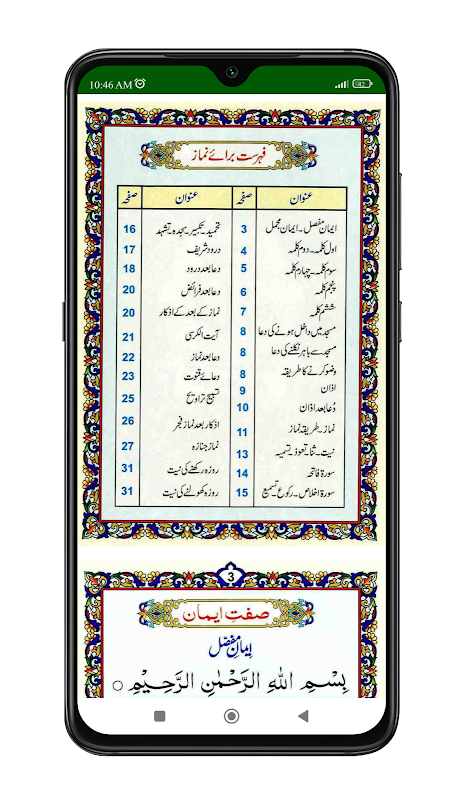 10:46 AM
42
فہرست برائے نماز
عنوان صفحہ عنوان صفحہ
ایمان مفصل۔ایمان مجمل 3
اول کلمہ۔دوم کلمہ 4
سوم کلمہ۔چہارم کلمہ 5
پنجم کلمہ 6
ششم کلمہ 7
مسجد میں داخل ہونے کی دعا 8
مسجد سے باہر نکلنے کی دعا 8
وضو کرنے کا طریقہ 8
اذان 9
دُعا بعد اذان 10
نماز۔طریقہ نماز 11
نیت۔ثنا۔تعوذ۔تسمیہ 13
سورۃ فاتحہ 14
سورۃ اخلاص۔رکوع۔تسمیع 15
تحمید۔تکبیر۔سجدہ۔تشہد 16
درود شریف 17
دعا بعد درود 18
دعا بعد فرائض 20
نماز کے بعد کے اذکار 20
آیت الکرسی 21
دعا بعد نماز 22
دعائے قنوت 23
تسبیح تراویح 25
اذکار بعد نماز فجر 26
نماز جنازہ 27
روزہ رکھنے کی نیت 31
روزہ کھولنے کی نیت 31
3
صفتِ ایمان
اِیمانِ مُفصّل
بِسْمِ اللهِ الرَّحْمٰنِ الرَّحِيْمِ